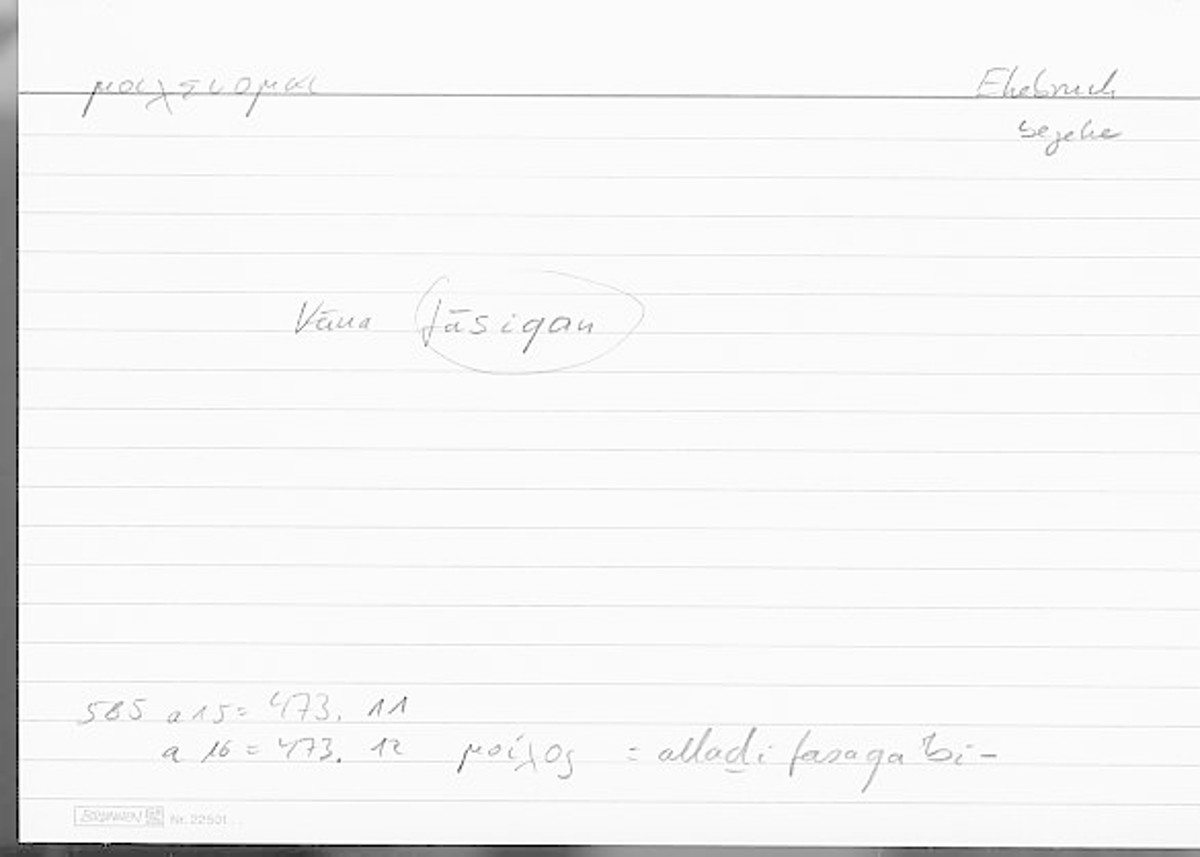 μοιχευομαι Ehebruch
begehe
Kāna fāsiqan
585 a 15 = 473. 11
a 16 = 473. 12 μοίχος = allaḏi fasaqa bi-
BRUNNEN Nr. 22501